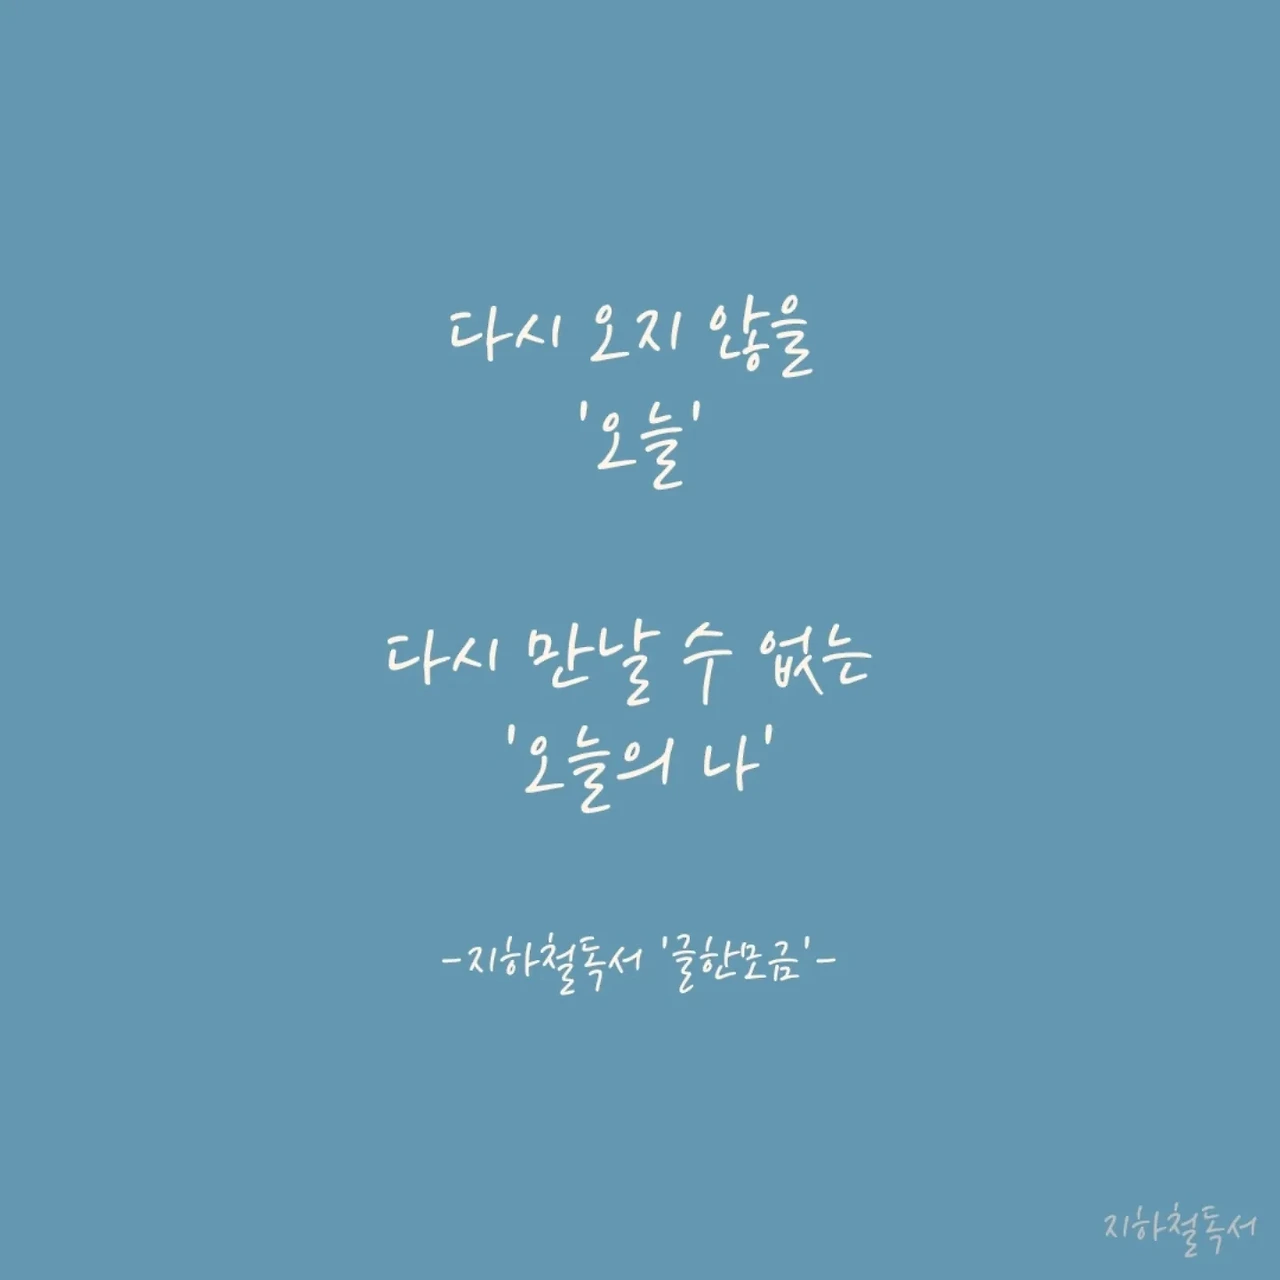 다시 오지 않을
'오늘'
다시 만날 수 없는
'오늘의 나'
-지하철독서 '글한모금'-
지하철독서